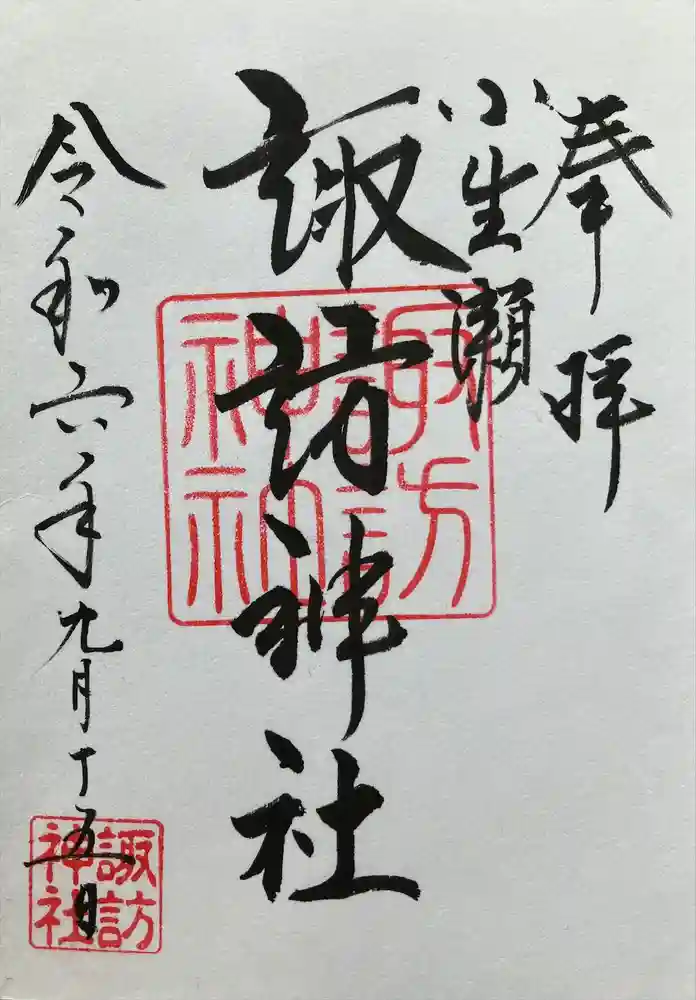 奉拝
小生瀬
諏諸神社
令和六年九月十五日
諏訪
神社
諏訪
神社